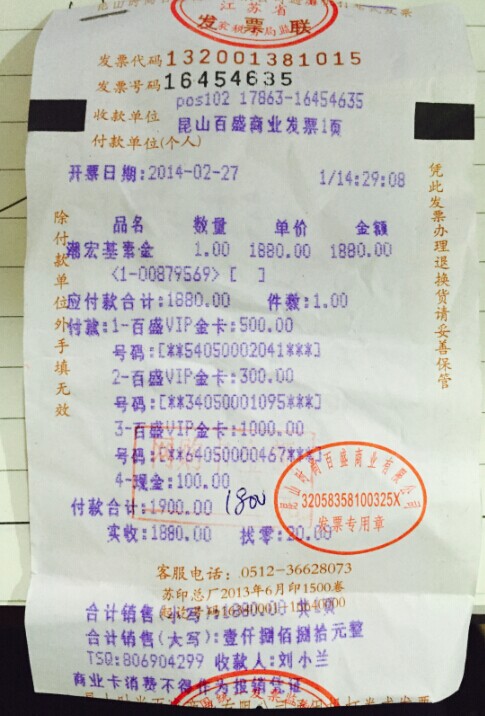 江苏省
发票联
发票代码132001381015
发票号码16454635
pos102 17863-16454635
收款单位 昆山百盛商业发票1页
付款单位(个人)
开票日期:2014-02-27 1/14:29:08
品名 数量 单价 金额
潮宏基素金 1.00 1880.00 1880.00
<1-00879569> [ ]
应付款合计:1880.00 件数:1.00
付款:1-百盛VIP金卡:500.00
号码:[**54050002041***]
2-百盛VIP金卡:300.00
号码:[**34050001095***]
3-百盛VIP金卡:1000.00
号码:[**64050000467***]
4-现金:100.00
付款合计:1900.00
1800
实收:1880.00 找零:20.00
32058358100325X
发票专用章
客服电话:0512-36628073
苏印总厂2013年6月印1500卷
合计销售(小写):1880.00
合计销售(大写):壹仟捌佰捌拾元整
TSQ:806904299 收款人:刘小兰
商业卡消费不得作为报销凭证
除付款单位外手填无效
凭此发票办理退换货请妥善保管